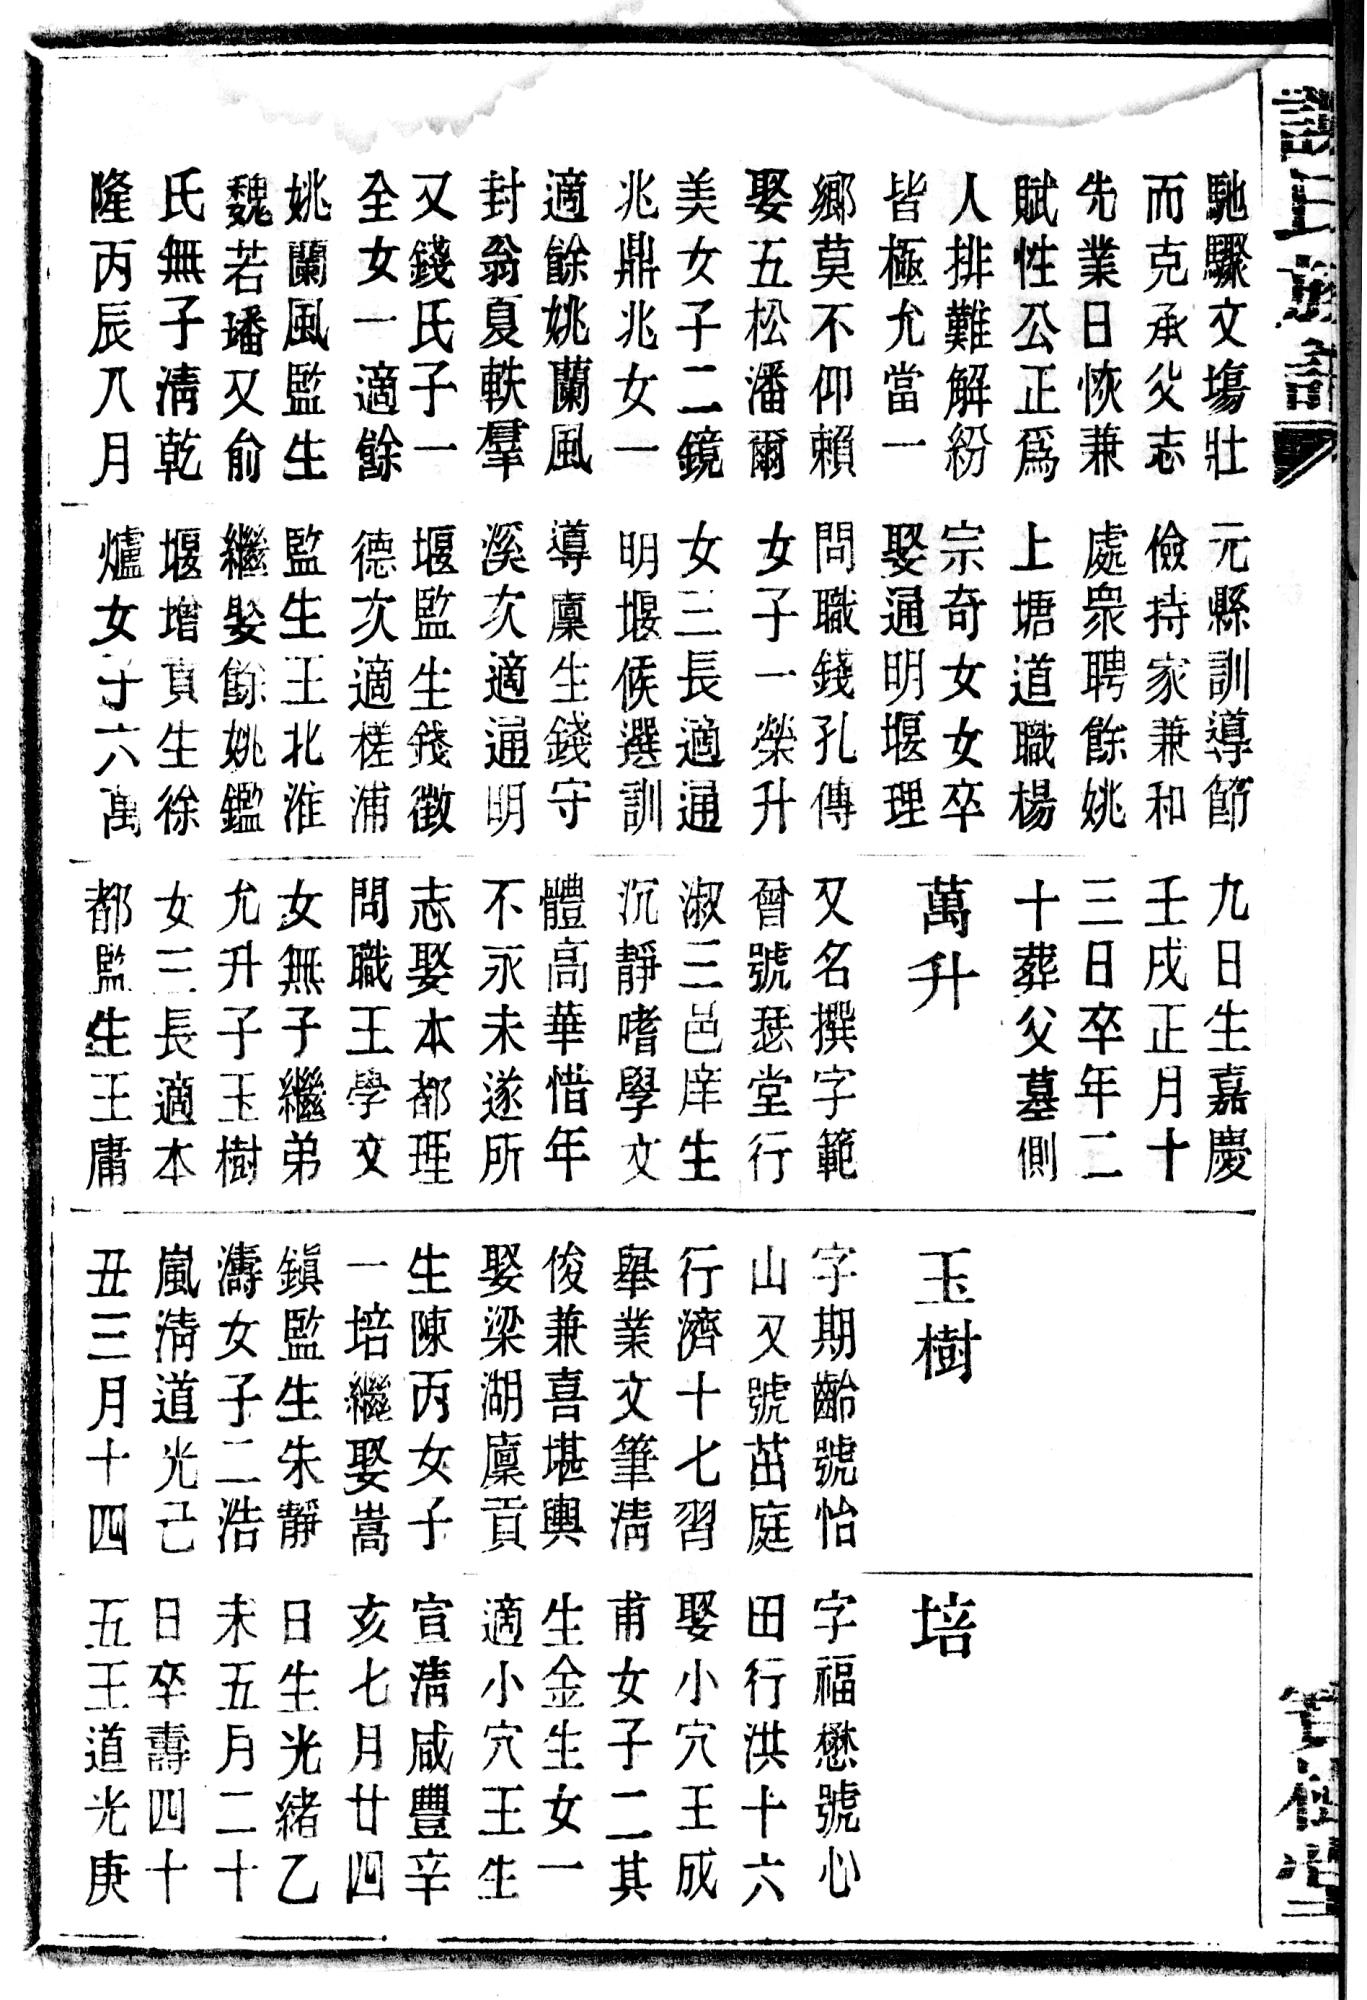 馳驟文塲壯
而克承父志
先業日恢兼
賦性公正爲
人排難解紛
皆極允當一
鄉莫不仰賴
娶五松潘爾
美女子二鏡
兆鼎兆女一
適餘姚蘭風
封翁夏軼羣
又錢氏子一
全女一適餘
姚蘭風監生
魏若璠又俞
氏無子淸乾
隆丙辰八月
元縣訓導節
儉持家兼和
處衆聘餘姚
上塘道職楊
宗奇女女卒
娶通明堰理
問職錢孔傳
女子一榮升
女三長適通
明堰候選訓
導廩生錢守
溪次適通明
堰監生錢徵
德次適槎浦
監生王北淮
繼娶餘姚鑑
堰增貢生徐
爐女子六萬
九日生嘉慶
壬戌正月十
三日卒年二
十葬父墓側
萬升
又名撰字範
曾號瑟堂行
淑三邑庠生
沉靜嗜學文
體高華惜年
不永未遂所
志娶本都理
問職王學文
女無子繼弟
允升子玉樹
女三長適本
都監生王庸
玉樹
字期齡號怡
山又號茁庭
行濟十七習
舉業文筆淸
俊兼喜堪輿
娶梁湖廩貢
生陳丙女子
一培繼娶嵩
鎭監生朱靜
濤女子二浩
嵐淸道光己
丑三月十四
培
字福懋號心
田行洪十六
娶小穴王成
甫女子二其
生金生女一
適小穴王生
宣淸咸豐辛
亥七月廿四
日生光緒乙
未五月二十
日卒壽四十
五王道光庚